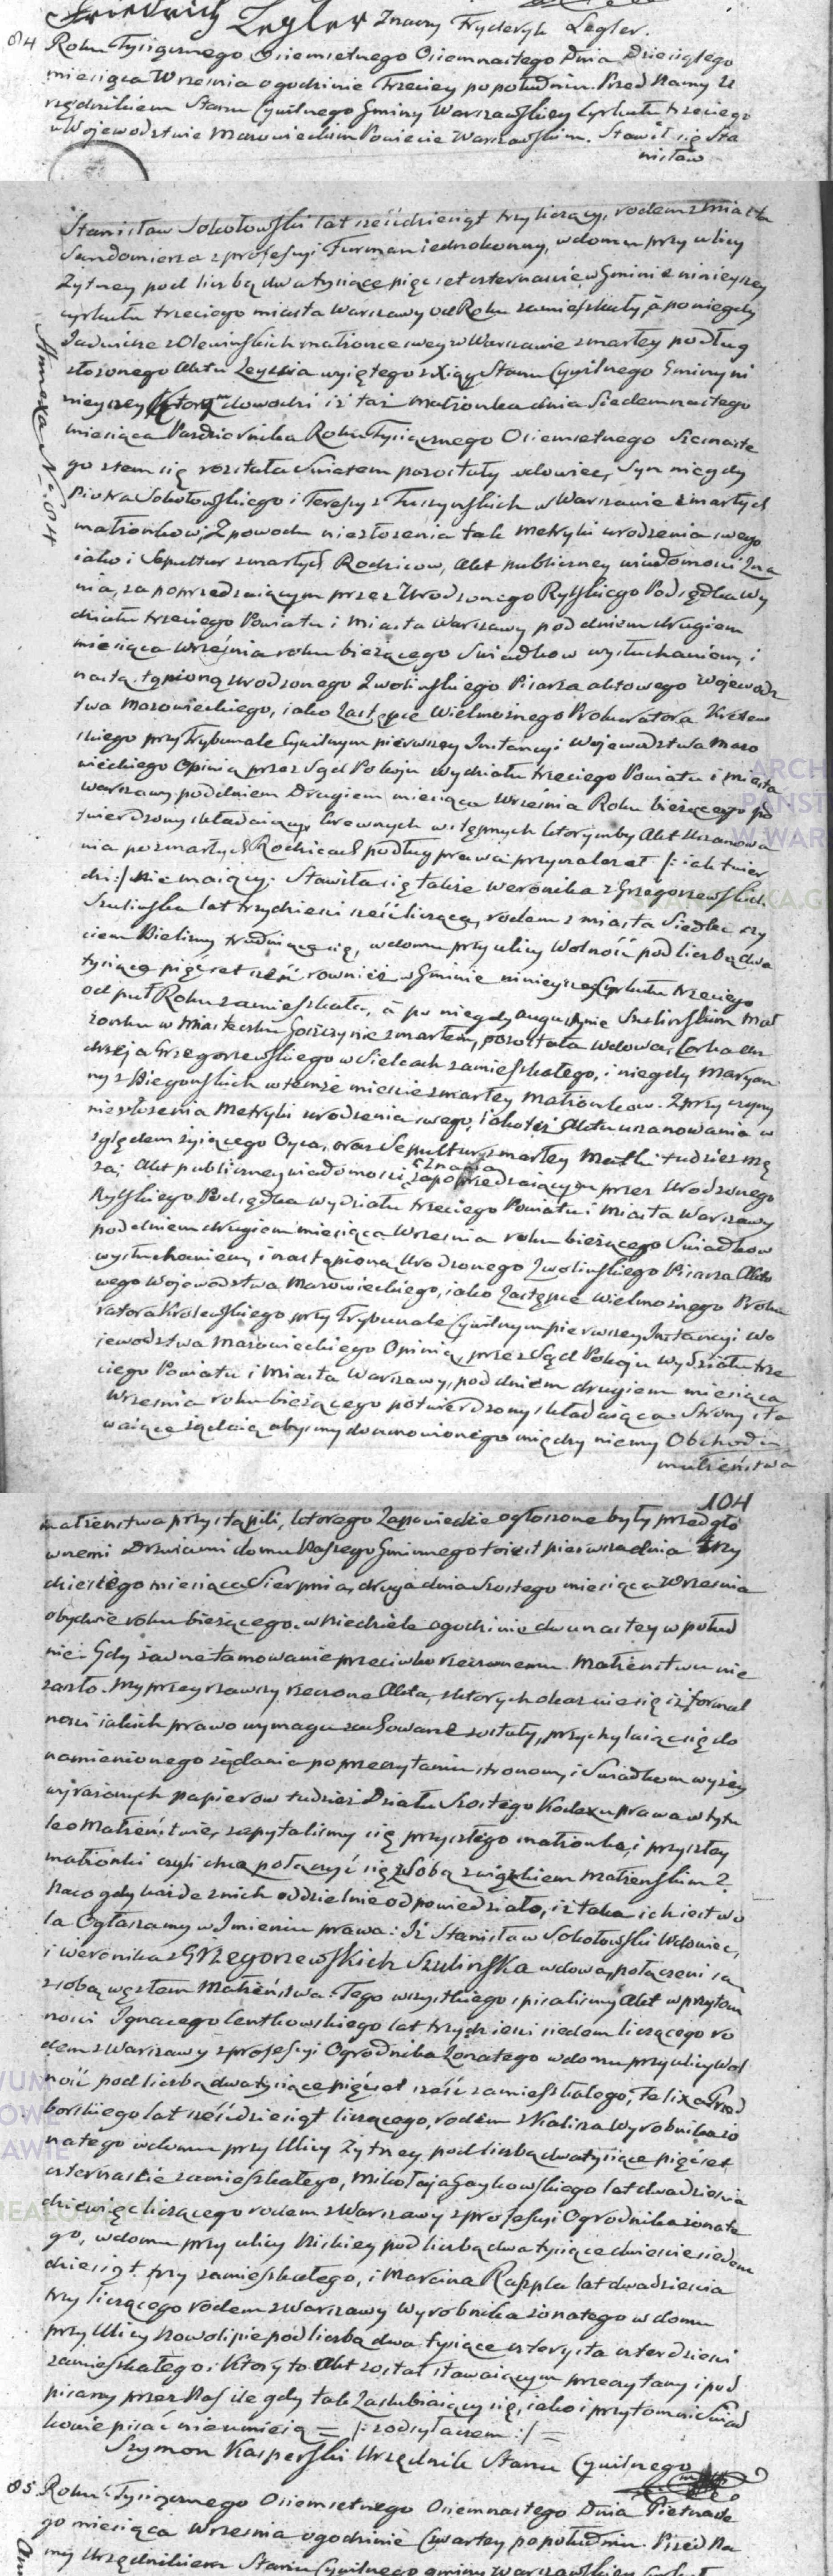 Friedrich Zegler Znaczy Fryderyk Legler.
84 Roku Tysiącznego Osiemsetnego Osiemnastego Dnia Dziesiątego
miesiąca Września o godzinie Trzeciey popołudniu. Przed Namy U
rzędnikiem Stanu Cywilnego Gminy Warszawskiey Cyrkułu trzeciego
w Wojewodztwie Mazowieckim Powiecie Warszawskim. Stawił się Sta
nisław
Stanisław Sokołowski lat sześćdziesiąt trzy liczący, rodem z Miasta
Sandomierza z profesyi Furman iednokonny, w domu przy ulicy
Żytney pod liczbą dwa tysiące pięćset czternaście, w Gminie ninieyszey
cyrkułu trzeciego miasta Warszawy od Roku zamieszkały, a po niegdy
Jadwidze z Olewińskich małżonce swey w Warszawie zmarłey podług
złożonego Aktu Zeyścia wyiętego z Xiąg Stanu Cywilnego Gminy ni
nieyszey, który dowodzi iż taż małżonka dnia Siedemnastego
miesiąca Pazdziernika Roku Tysiącznego Osiemsetnego Siemnaste
go z tem się rozstała Swiatem pozostały wdowiec, Syn niegdy
Piotra Sokołowskiego i Teressy z Tuszynskich w Warszawie zmarłych
małżonkow; Z powodu niezłożenia tak Metryki urodzenia swego
iako i Sepultur zmarłych Rodzicow, Akt publiczney wiadomosci Zna
nia, za poprzedzaiącym przez Urodzonego Rylskiego Podsędka Wy
działu trzeciego Powiatu i Miasta Warszawy pod dniem drugiem
miesiąca Września roku bieżącego Swiadkow wysłuchaniem, i
nastą tąpioną Urodzonego Zwolinskiego Pisarza aktowego Wojewodz
twa Mazowieckiego, iako Zastępce Wielmożnego Prokuratora Krolew
skiego przy Trybunale Cywilnym pierwszey Instancyi Wojewodztwa Mazo
wieckiego Opinią przez Sąd Pokoju Wydziału trzeciego Powiatu i Miasta
Warszawy pod dniem Drugiem miesiąca Września Roku bieżącego po
twierdzony składaiący, krewnych wstępnych ktorymby Akt Uszanowa
nia po zmarłych Rodzicach podług prawa przynależał /: iak twier
dzi :/ nie maiący. Stawiła się także Weronika z Grzegorzewskich
Szulinska lat trzydzieści sześć licząca, rodem z miasta Siedlec szy
ciem Bielizny trudniąca się, w domu przy ulicy Wolność pod liczbą dwa
tysiące pięćset sześć rownież w Gminie ninieyszey Cyrkułu trzeciego
od puł Roku zamieszkała, a po niegdy Augustynie Szulinskim Mał
żonku w Miasteczku Goszczynie zmarłem, pozostała wdowa, Corka An
drzeja Grzegorzewskiego w Sielcach zamieszkałego, i niegdy Maryan
ny z Biegonskich w temże miescie zmarłey Małżonkow. Z przyczyny
niezłożenia Metryki urodzenia swego, iakoteż Aktu uszanowania w
zględem żyiącego Oyca, oraz Sepultury zmarłey Matki tudzież mę
ża; Akt publiczney wiadomosci Znania za poprzedzaiącym przez Urodzonego
Rylskiego Podsędka wydziału trzeciego Powiatu i Miasta Warszawy
pod dniem drugiem miesiąca Września roku bieżącego Swiadkow
wysłuchaniem, i nastąpioną Urodzonego Zwolinskiego Pisarza Akto
wego Wojewodztwa Mazowieckiego, iako Zastępce Wielmożnego Proku
ratora Krolewskiego przy Trybunale Cywilnym pierwszey Instancyi Wo
jewodztwa Mazowieckiego Opinią, przez Sąd Pokoju wydziału trze
ciego Powiatu i Miasta Warszawy, pod dniem drugiem miesiąca
Września roku bieżącego potwierdzony składaiąca. Strony sta
waiące żądaią abysmy do umowionego między niemy Obchodu
małżeństwa
Annexa No. 84
104
małżenstwa przystąpili, ktorego Zapowiedzie ogłoszone były przed gło
wnemi Drzwiami domu Naszego Gminnego to iest pierwsza dnia trzy
dziestego miesiąca Sierpnia, druga dnia Szostego miesiąca Września
obydwie roku bieżącego w Niedziele o godzinie dwunastey w połud
nie. Gdy żadne tamowanie przeciwko rzeczonemu Małżenstwu nie
zaszło. My przeyrzawszy rzeczone Akta, z ktorych okazuie się iż formal
nosci iakich prawo wymaga zachowane zostały, przychylaiąc się do
namienionego żądania po przeczytaniu stronom i Swiadkom wyżey
wyrażonych papierow tudzież Działu Szostego Kodexu prawa w tytu
le o Małżeństwie, zapytalismy się przyszłego małżonka, i przyszłey
małżonki czyli chcą połączyć się z sobą związkiem Małżenskim?
Na co gdy każde z nich oddzielnie odpowiedziało, iż taka ich iest wo
la Ogłaszamy w Imieniu prawa: Iż Stanisław Sokołowski Wdowiec,
i Weronika z Grzegorzewskich Szulinska wdowa, połączeni są
z sobą węzłem Małżeństwa. Tego wszystkiego spisalismy Akt w przytom
nosci Ignacego Centkowskiego lat trzydzieści siedem liczącego ro
dem z Warszawy z profesyi Ogrodnika Zonatego w domu przy ulicy Wol
ność pod liczbą dwa tysiące pięćset sześć zamieszkałego, Felixa Grod
borskiego lat sześćdziesiąt liczącego, rodem z Kalisza Wyrobnika żo
natego w domu przy Ulicy Żytney pod liczbą dwa tysiące pięćset
czternaście zamieszkałego, Mikołaja Gaykowskiego lat dwadzieścia
dziewięć liczącego rodem z Warszawy z profesyi Ogrodnika żonate
go, w domu przy ulicy Niskiey pod liczbą dwa tysiące dwieście siedem
dziesiąt trzy zamieszkałego, i Marcina Raszpla lat dwadzieścia
trzy liczącego rodem z Warszawy Wyrobnika żonatego w domu
przy Ulicy Nowolipie pod liczbą dwa tysiące czterysta czterdzieści
zamieszkałego. Który to Akt został stawaiącym przeczytany i pod
pisany przez Nas ile gdy tak Zaslubiaiący się, iako i przytomni Swiad
kowie pisać nieumieią = /: z odsyłaczem :/ =
Szymon Kasperski Urzędnik Stanu Cywilnego
85 Roku Tysiącznego Osiemsetnego Osiemnastego Dnia Pietnaste
go miesiąca Września o godzinie Czwartey popołudniu. Przed Na
my Urzędnikiem Stanu Cywilnego gminy Warszawskiey